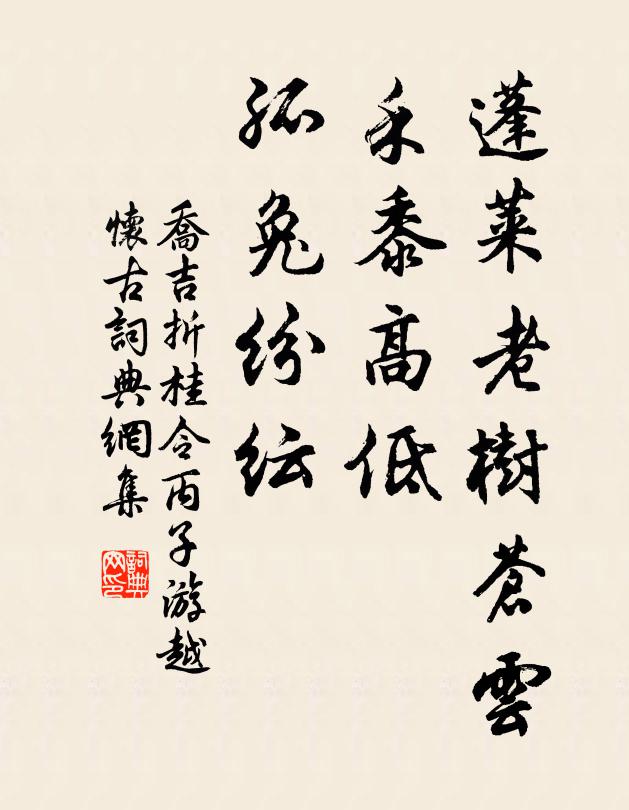 蓬萊老樹蒼雲
禾黍高低
狐兔紛紜
喬吉折桂令丙子游越
懷古詞典網集
詞典網印